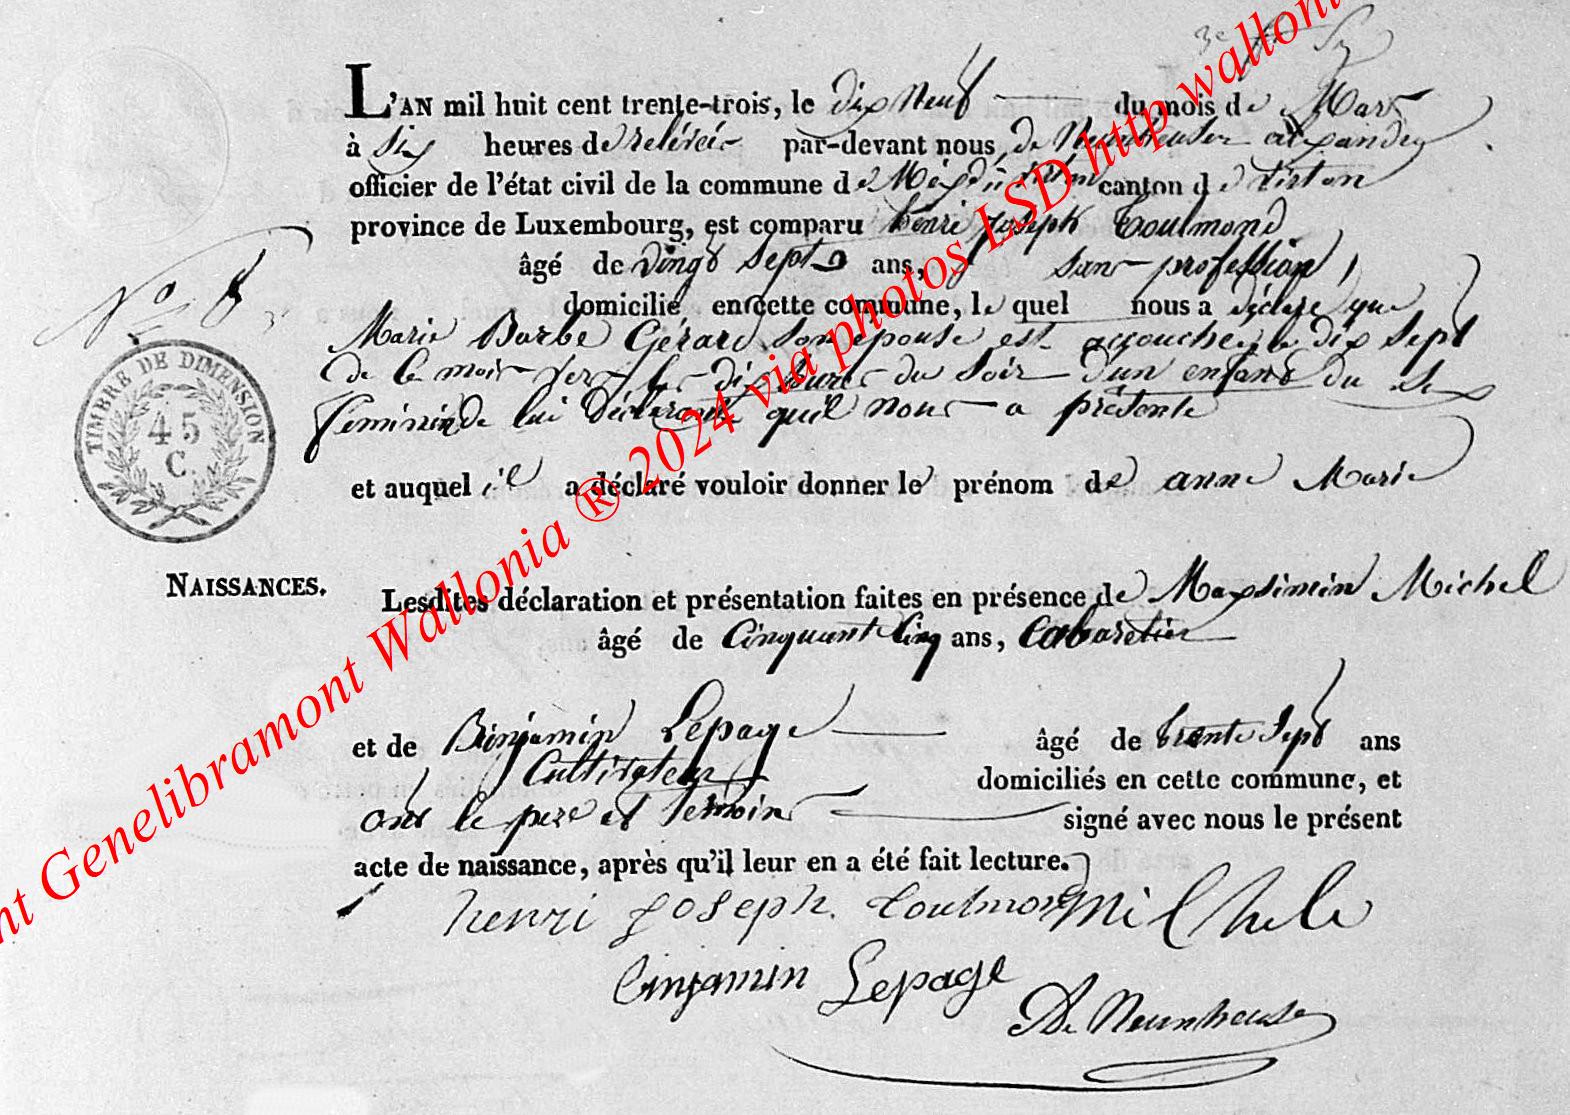 3e
L'AN mil huit cent trente-trois, le dix Neuf du mois de Mars
à Six heures de relévée par-devant nous, de Neunheuser alexandre
officier de l'état civil de la commune de Meix dt virton canton de virton
province de Luxembourg, est comparu henri joseph Toulmond
âgé de vingt Sept ans, Sans profession,
No 8
domicilié en cette commune, le quel nous a déclaré que
Marie Barbe Gérard Son epouse est accouchée le dix Sept
de ce mois vers les dix heures du Soir d'un enfant du Sexe
feminin de lui déclarant qu'il nous a présenté
TIMBRE DE DIMENSION
45
C.
et auquel il a déclaré vouloir donner le prénom de anne Marie
NAISSANCES.
Lesdites déclaration et présentation faites en présence de Maximin Michel
âgé de Cinquante Cinq ans, Cabaretier
et de Binjamin Lepage âgé de trente Sept ans
Cultivateur domiciliés en cette commune, et
ont le pere et temoins signé avec nous le présent
acte de naissance, après qu'il leur en a été fait lecture.
henri joseph. toulmond Michel
Binjamin Lepage
A De Neunheuser
nt Genelibramont Wallonia ® 2024 via photos LSD http walloni